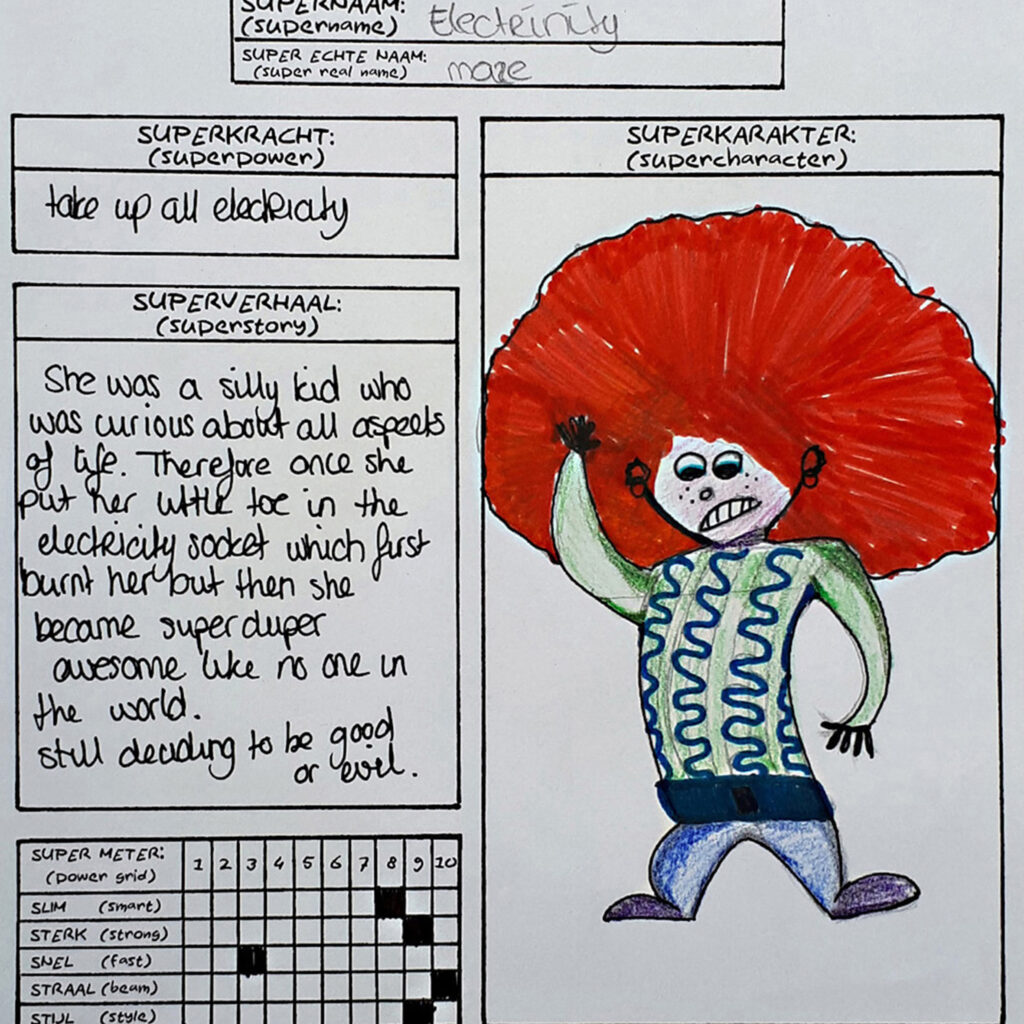 SUPERNAAM:
(supername)
Electrinity
SUPER ECHTE NAAM:
(super real name)
maze
SUPERKRACHT:
(superpower)
take up all electricity
SUPERVERHAAL:
(superstory)
She was a silly kid who
was curious about all aspects
of life. Therefore once she
put her little toe in the
electricity socket which first
burnt her but then she
became super duper
awesome like no one in
the world.
still deciding to be good
or evil.
SUPER METER:
(power grid)
1 2 3 4 5 6 7 8 9 10
SLIM (smart)
STERK (strong)
SNEL (fast)
STRAAL (beam)
STIJL (style)
SUPERKARAKTER:
(supercharacter)